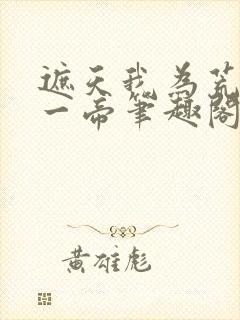 遮天我为荒
一帝笔趣阁
黄雄彪